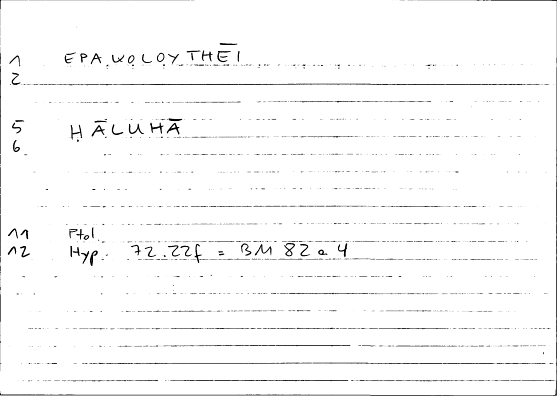 1 EPAKOLOYTHĒI
2
5 ḤĀLUHĀ
6
11 Ptol
12 Hyp. 72.22f = BM 82 a 4